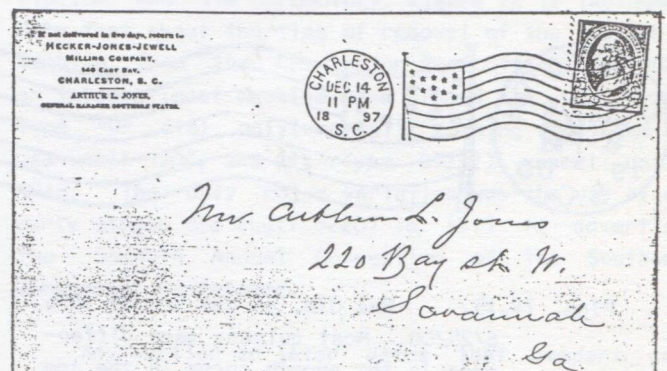 If not delivered in five days, return to
HECKER-JONES-JEWELL
MILLING COMPANY,
140 EAST BAY,
CHARLESTON, S. C.
ARTHUR L. JONES,
GENERAL MANAGER SOUTHERN STATES.
CHARLESTON
DEC 14
11 PM
18 97
S. C.
Mr. Arthur L. Jones
220 Bay st W.
Savannah
Ga